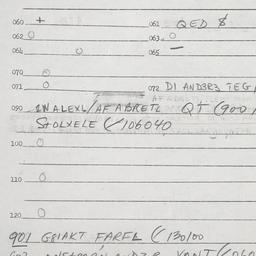 060 + 061 QED $
062 O 063 O
064 O 065 —
070 O
071 O 072 DI AND3R3 TEG
090 1WALEXL/AFABRETL QT (900
STOLXELE (/106040
100 O
110 O
120 O
901 G81AKT FARFL (130100